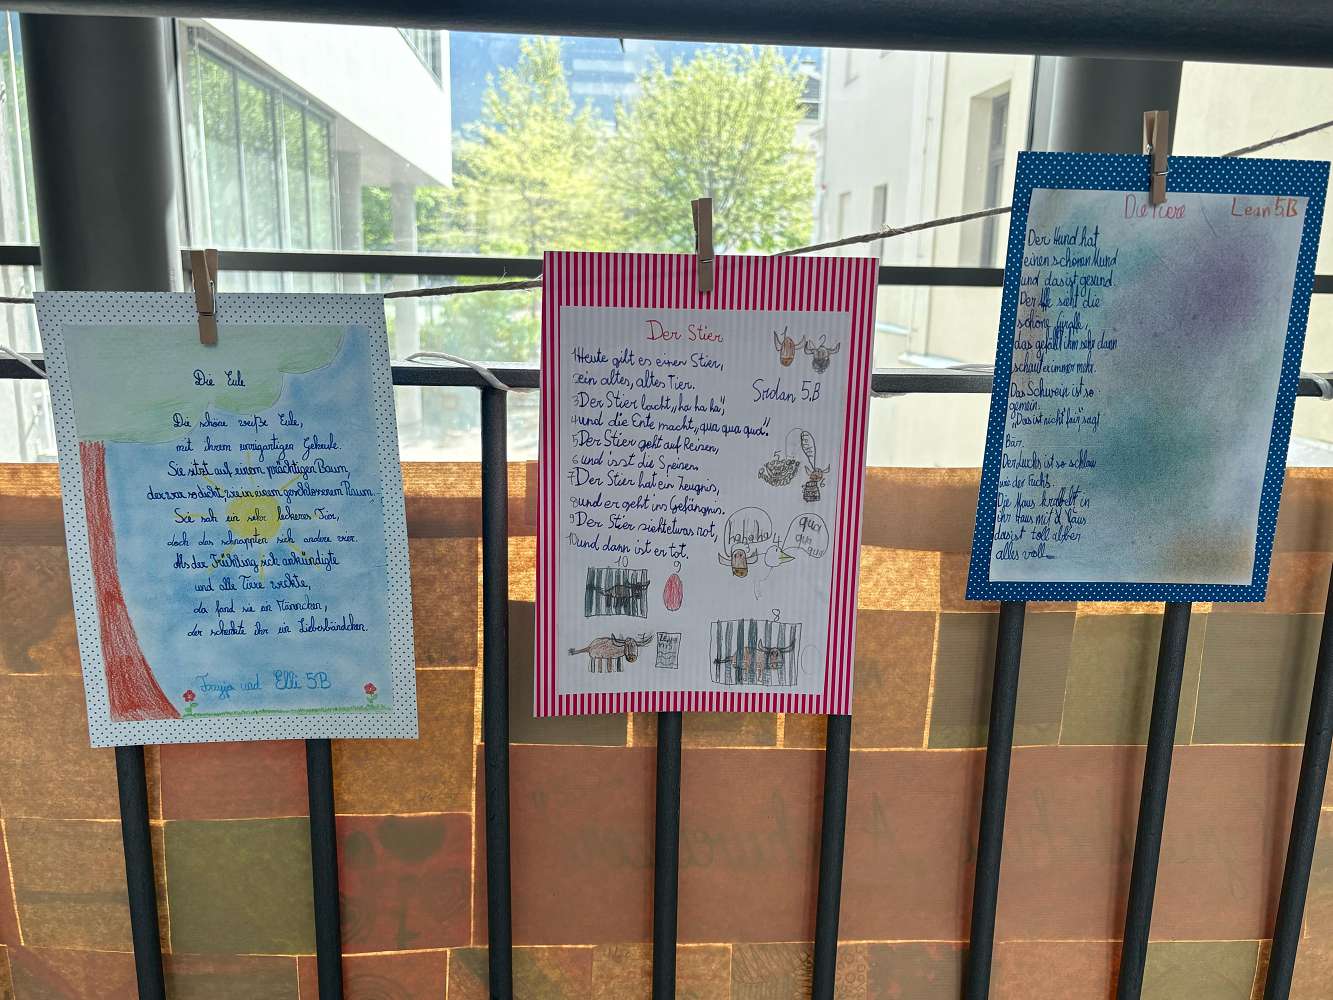 Die Eule
Die schöne weiße Eule,
mit ihrem einzigartigen Geheule.
Sie sitzt auf einem prächtigen Baum,
der war so dicht, wie in einem geschlossenem Raum.
Sie sah ein sehr leckeres Tier,
doch das schnappten sich andere vier.
Als der Frühling sich ankündigte
und alle Tiere weckte,
da fand sie ein Männchen,
der schenkte ihr ein Liebesbändchen.
und Elli 5B
Der Stier
Srdan 5.B
1 Heute gibt es einen Stier,
2 ein altes, altes Tier.
3 Der Stier lacht „ha ha ha",
4 und die Ente macht „qua qua qua".
5 Der Stier geht auf Reisen,
6 und isst die Speisen.
7 Der Stier hat ein Zeugnis,
8 und er geht ins Gefängnis.
9 Der Stier sieht etwas rot,
10 und dann ist er tot.
5
hahaha
4
qua
qua
qua
10
9
8
Die Tiere
Lean 5.B
Der Hund hat
einen schönen Mund
und das ist gesund.
Der Affe sieht die
schöne Giraffe,
das gefällt ihm sehr dann
schaut er immer mehr.
Das Schwein ist so
gemein.
„Das ist nicht fair" sagt
Bär.
Der Luchs ist so schlau
wie der Fuchs.
Die Maus krabbelt in
ihr Haus mit d Laus
das ist toll abber
alles voll